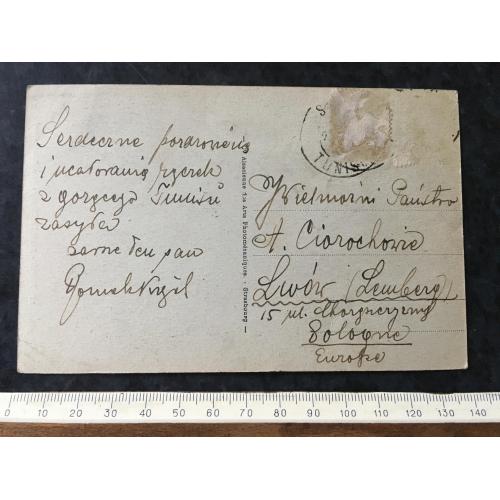 Serdeczne pozdrowienia
i ucałowania rączek
z gorącego Tunisu
zasyła
ten pan
Alsacienne des Arts Photomécaniques. - Strasbourg —
TUNIS
Wielmożni Państwo
A. Ciorochowie
Lwów (Lemberg)
15 ul.
Pologne
Europe
0 10 20 30 40 50 60 70 80 90 100 110 120 130 140